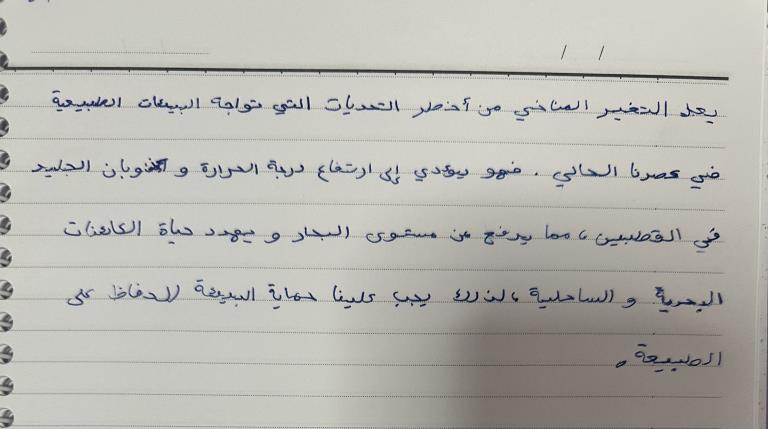 / /
يعد التغير المناخي من أخطر التحديات التي تواجه البيئات الطبيعية
في عصرنا الحالي . فهو يؤدي إلى ارتفاع درجة الحرارة و ذوبان الجليد
في القطبين، مما يرفع من مستوى البحار و يهدد حياة الكائنات
البحرية و الساحلية، لذلك يجب علينا حماية البيئة للحفاظ على
الطبيعة.